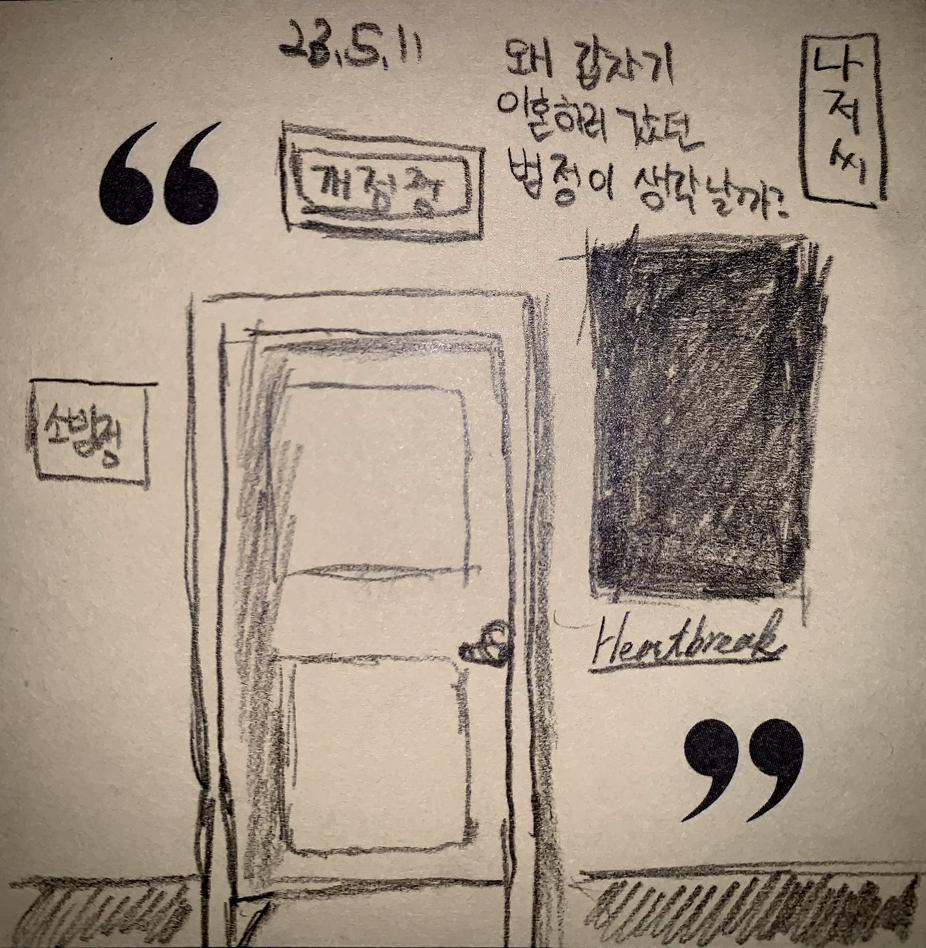 23.5.11
왜 갑자기
이혼하러 갔던
법정이 생각날까?
나저씨
“
개정중
소법정
Heartbreak
”